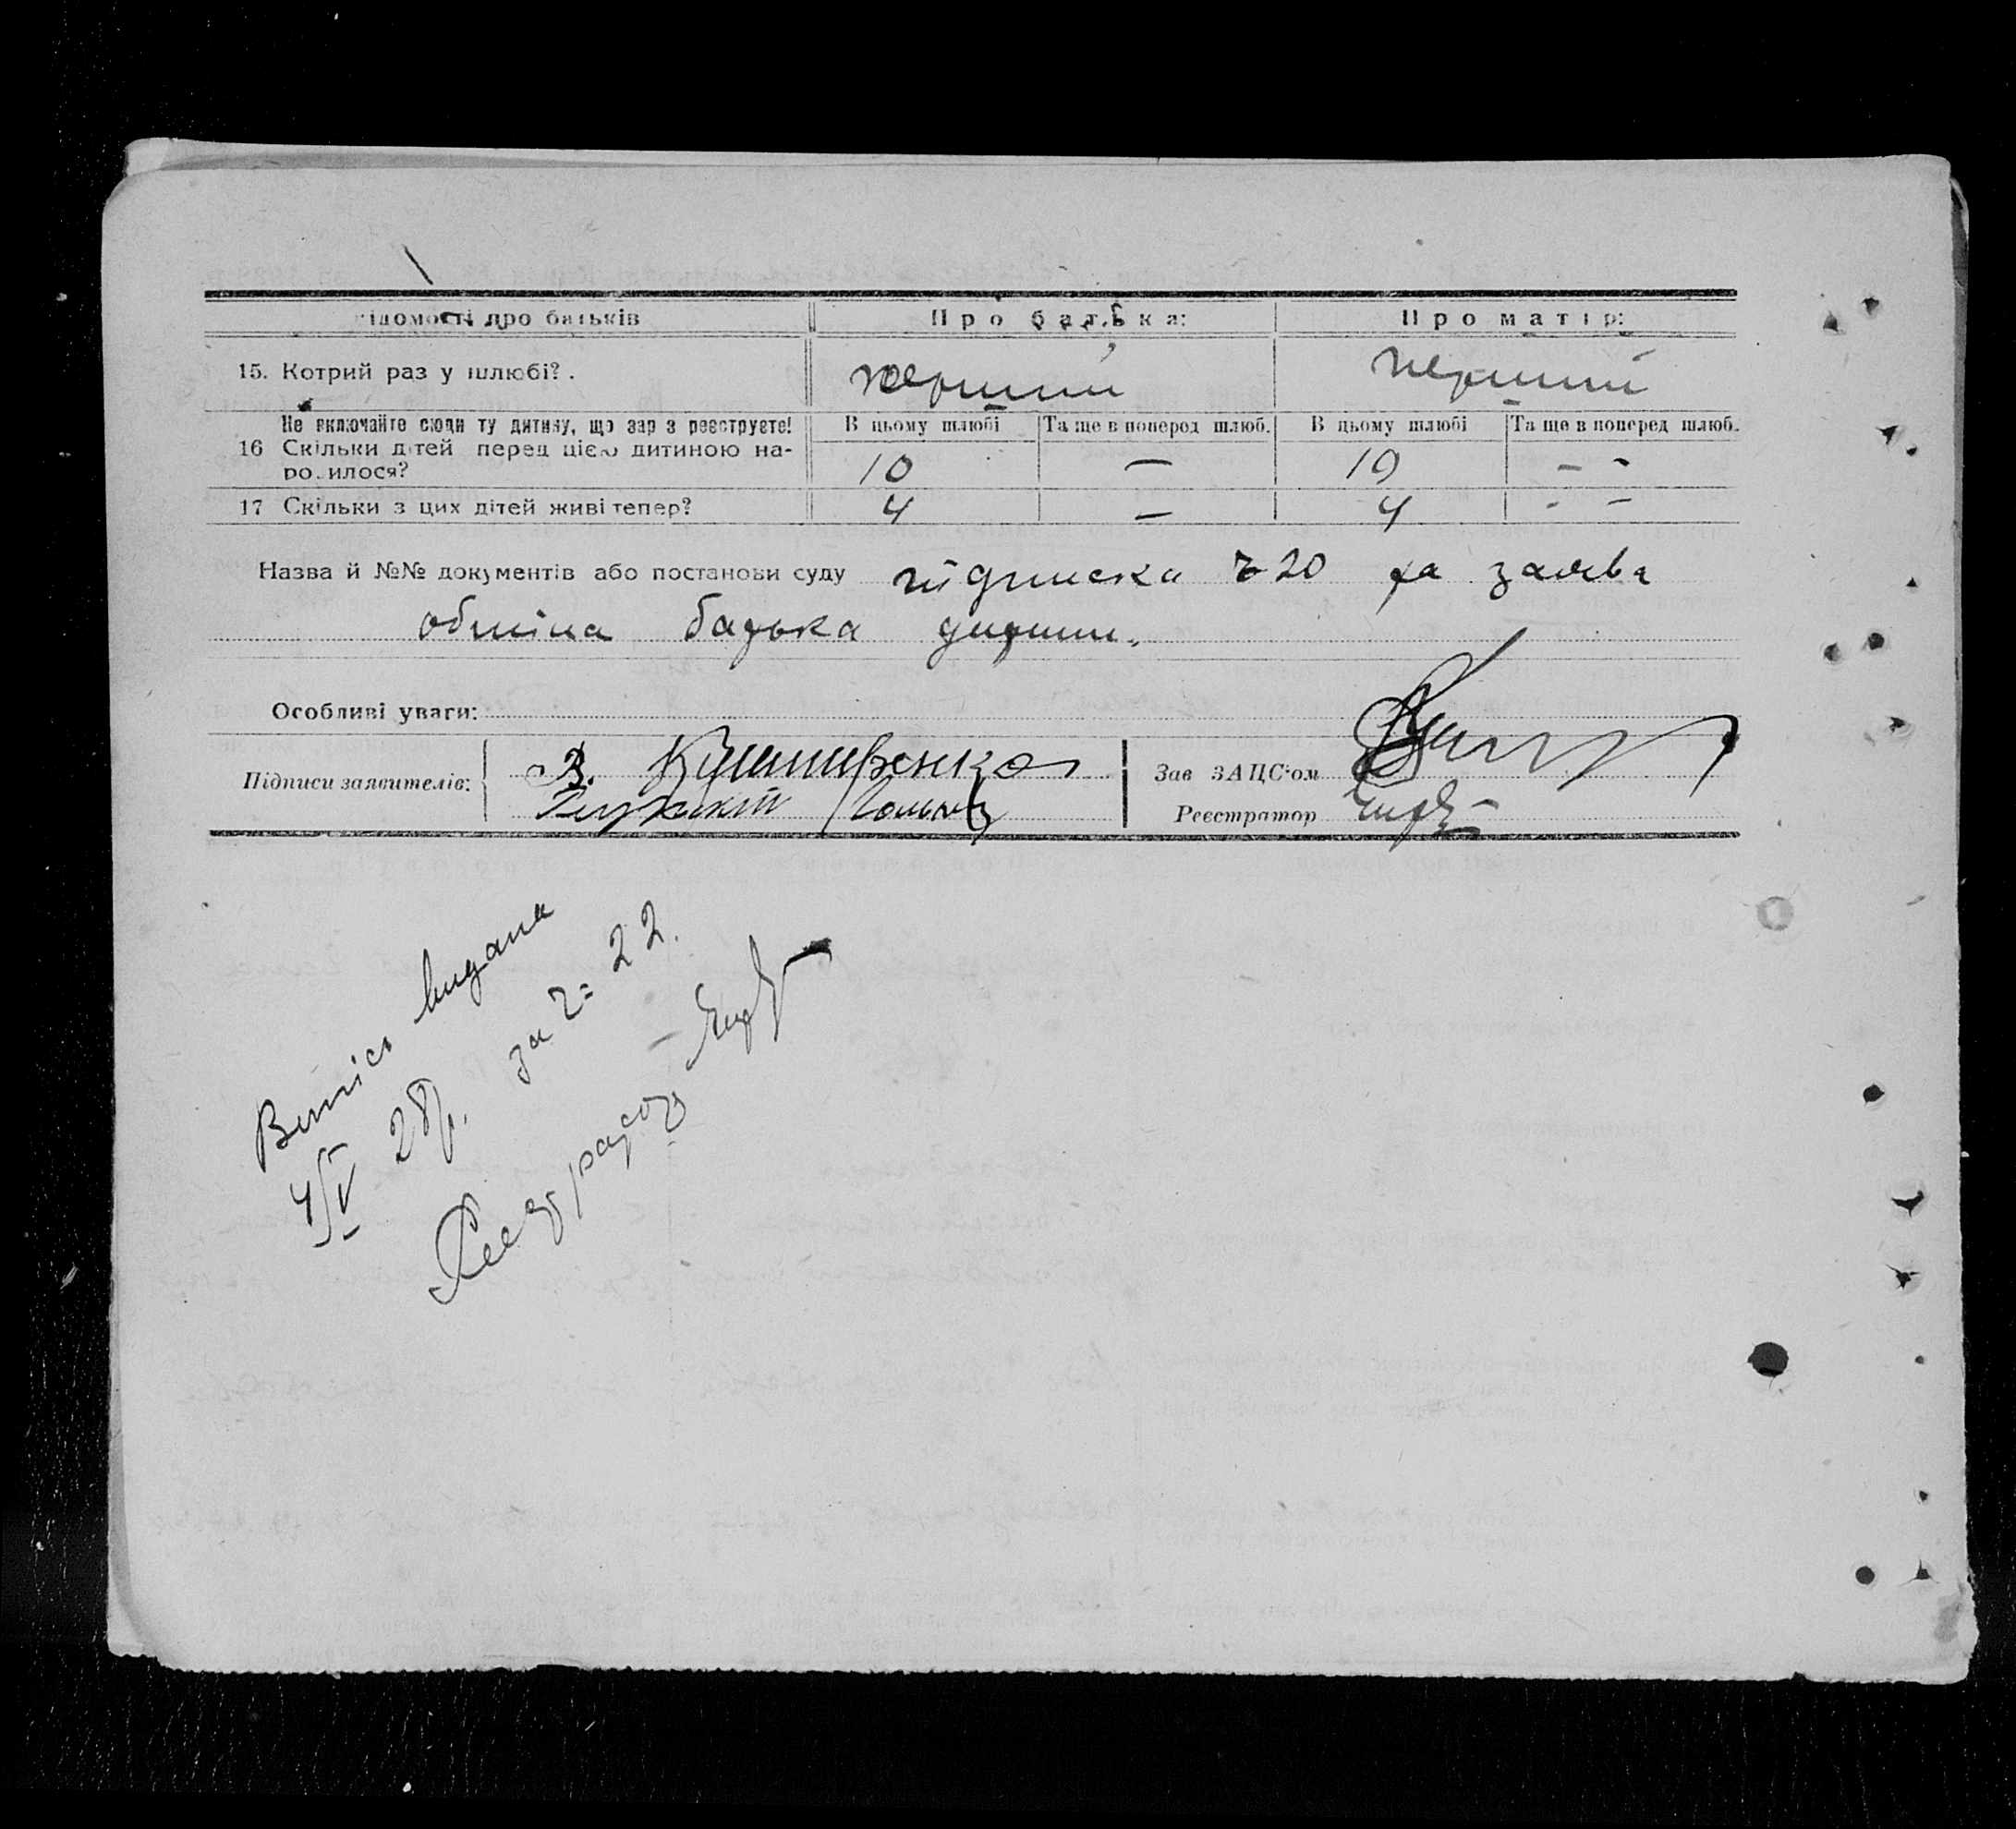 Відомості про батьків Про батька: Про матір:
15. Котрий раз у шлюбі?. перший перший
Не включайте сюди ту дитину, що зар з реєструєте! В цьому шлюбі Та ще в поперед шлюб. В цьому шлюбі Та ще в поперед шлюб.
16 Скільки дітей перед цією дитиною на-
ро илося? 10 — 10 - -
17 Скільки з цих дітей живі тепер? 4 — 4 - -
Назва й №№ документів або постанови суду підписка ч 20 та заява
обміна батька дитини.
Особливі уваги:
Підписи заявителів: Кушніренко
Зав ЗАЦС'ом
Реєстратор
Випісь видана
4/IV 28р. за ч= 22.
Реєстратор